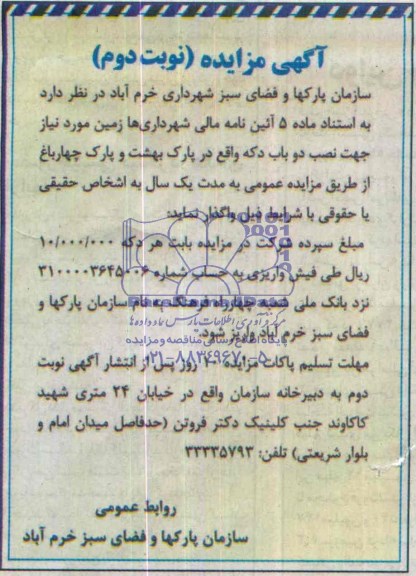 آگهی مزایده (نوبت دوم)
سازمان پارکها و فضای سبز شهرداری خرم آباد در نظر دارد
به استناد ماده ۵ آئین نامه مالی شهرداری‌ها زمین مورد نیاز
جهت نصب دو باب دکه واقع در پارک بهشت و پارک چهارباغ
از طریق مزایده عمومی به مدت یک سال به اشخاص حقیقی
یا حقوقی با شرایط ذیل واگذار نماید:
مبلغ سپرده شرکت در مزایده بابت هر دکه ۱۰/۰۰۰/۰۰۰
ریال طی فیش واریزی به حساب شماره ۳۱۰۰۰۰۳۶۴۵۰۰۶
نزد بانک ملی شعبه چهارراه فرهنگ به نام سازمان پارکها و
فضای سبز خرم آباد واریز شود.
پایگاه اطلاع رسانی مناقصه و مزایده
۰۲۱-۸۸۳۴۹۶۷۰-۵
مهلت تسلیم پاکات مزایده ۱۰ روز پس از انتشار آگهی نوبت
دوم به دبیرخانه سازمان واقع در خیابان ۲۴ متری شهید
کاکاوند جنب کلینیک دکتر فروتن (حدفاصل میدان امام و
بلوار شریعتی) تلفن: ۳۳۳۳۵۷۹۳
روابط عمومی
سازمان پارکها و فضای سبز خرم آباد